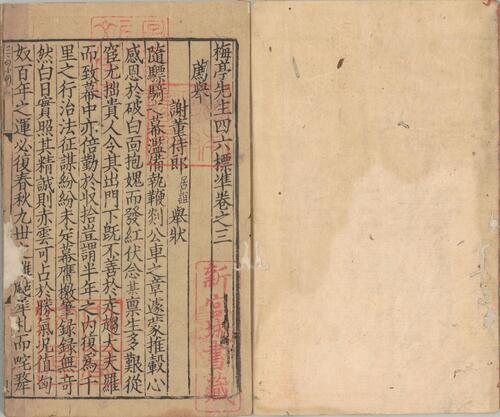 梅亭先生四六標準卷之三
薦舉
謝董侍郎居誼舉狀
隨驃騎之幕濫備執鞭剡公車之章遽蒙推轂心
感恩於破白面抱媿而發紅伏念某稟生多艱從
宦尤拙貴人令其出門下旣不善於走趨大夫羅
而致幕中亦倍勤於收拾豈謂半年之內復爲千
里之行治法征謀紛紛未定幕譍檄筆錄錄無奇
然白日實照其精誠則赤雲可占於勝氣况值匈
奴百年之運必復春秋九世之讎
而咤
新宮城書藏